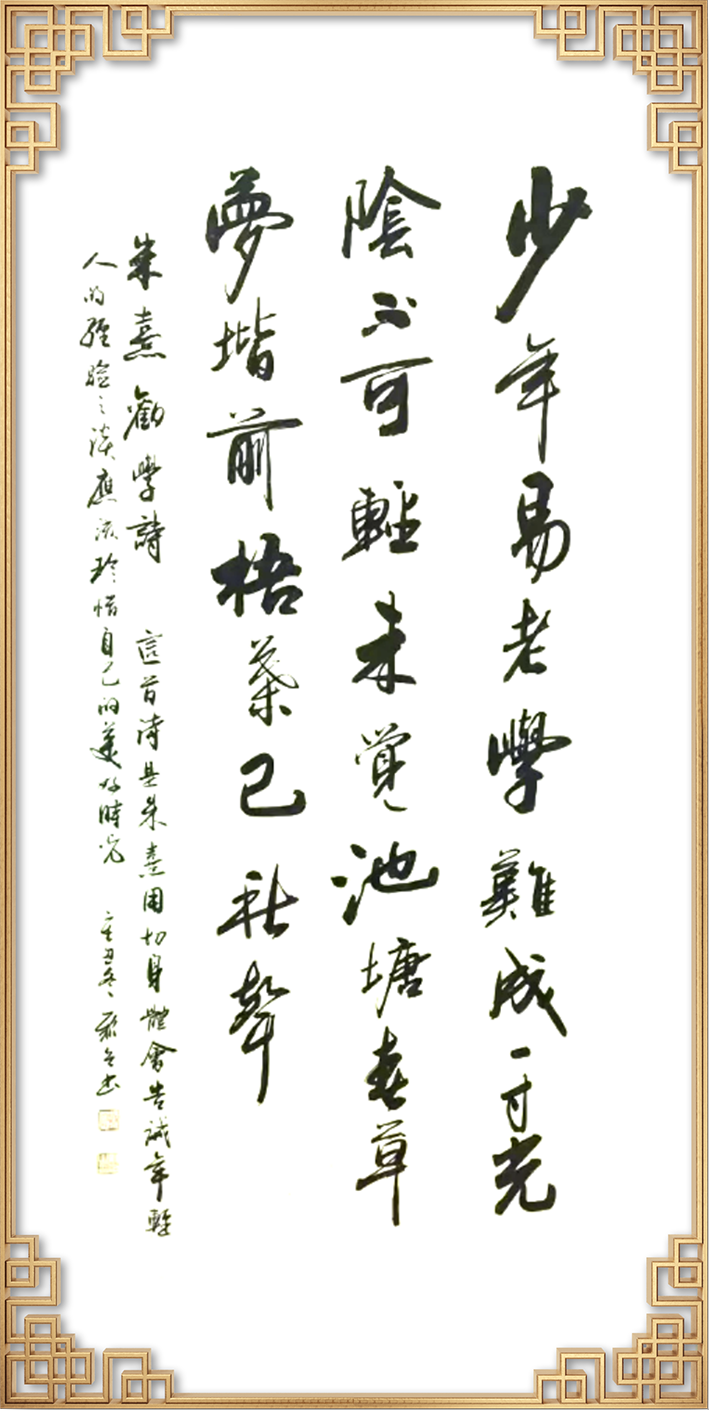 少年易老學難成一寸光
陰不可輕未覺池塘春草
夢堦前梧葉已秋聲
朱熹勸學詩 這首诗是朱熹用切身體會告诫年輕
人的經驗之談應该珍惜自己的美好時光 辛丑冬